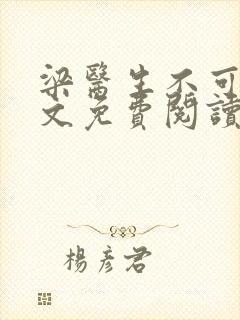 梁醫生不可
文免費閱讀
楊彥君